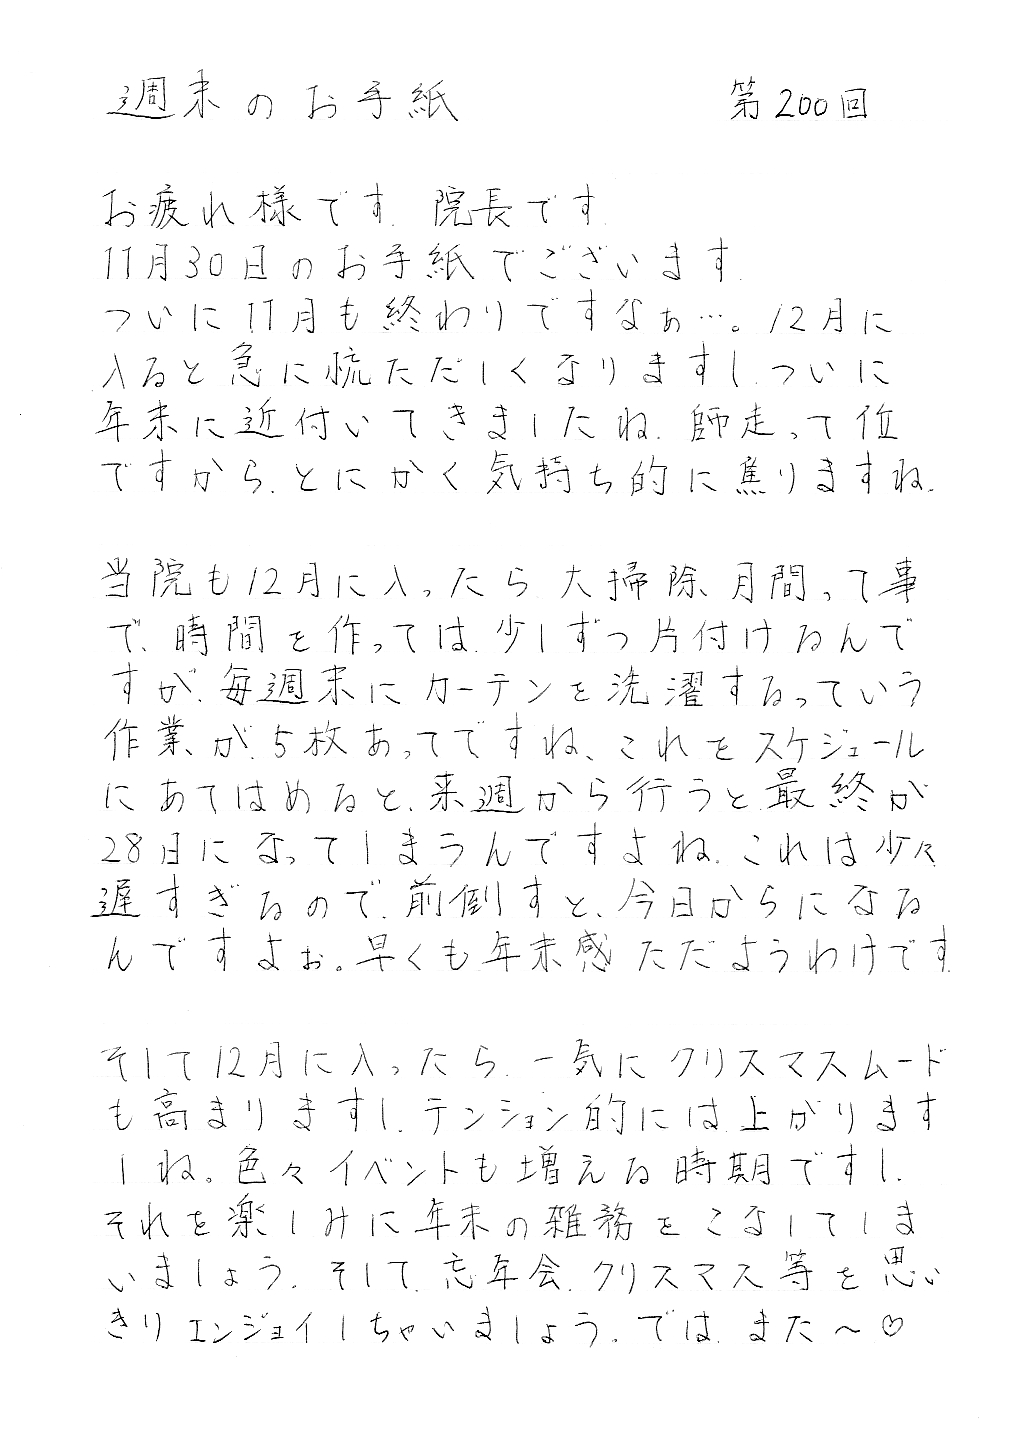 週末のお手紙 第200回
お疲れ様です.院長です.
11月30日のお手紙でございます.
ついに11月も終わりですなぁ…。12月に
入ると急に慌ただしくなりますし.ついに
年末に近付いてきましたね.師走って位
ですから.とにかく気持ち的に焦りますね.
当院も12月に入ったら.大掃除月間って事
で、時間を作っては.少しずつ片付けるんで
すが.毎週末にカーテンを洗濯するっていう
作業が.5枚あってですね、これをスケジュール
にあてはめると、来週から行うと.最終が
28日になってしまうんですよね.これは少々
遅すぎるので.前倒すと、今日からになる
んですよぉ。早くも年末感ただようわけです.
そして12月に入ったら.一気にクリスマスムード
も高まりますし.テンション的には上がります
しね。色々イベントも増える時期ですし.
それを楽しみに年末の雑務をこなしてしま
いましょう.そして.忘年会.クリスマス等を思い
きりエンジョイしちゃいましょう。では.また～♡